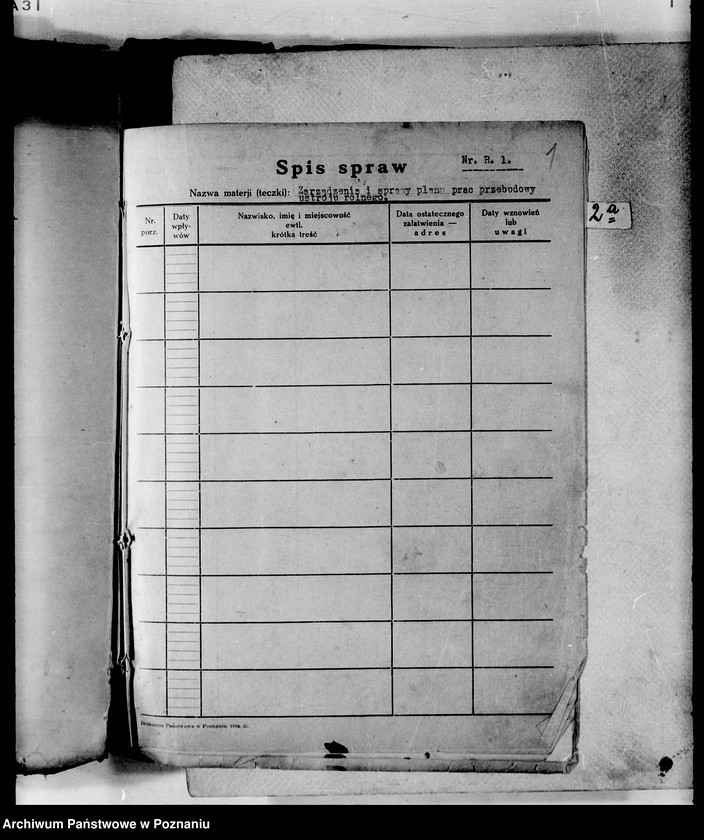 A31
Spis spraw
Nr. R. 1.
1
Nazwa materji (teczki): Zarządzenie i sprawy planu prac przebudowy
ustroju rolnego.
2a
Nr.
porz.
Daty
wpły-
wów
Nazwisko, imię i miejscowość
ewtl.
krótka treść
Data ostatecznego
załatwienia —
adres
Daty wznowień
lub
uwagi
Drukarnia Państwowa w Poznaniu.
Archiwum Państwowe w Poznaniu